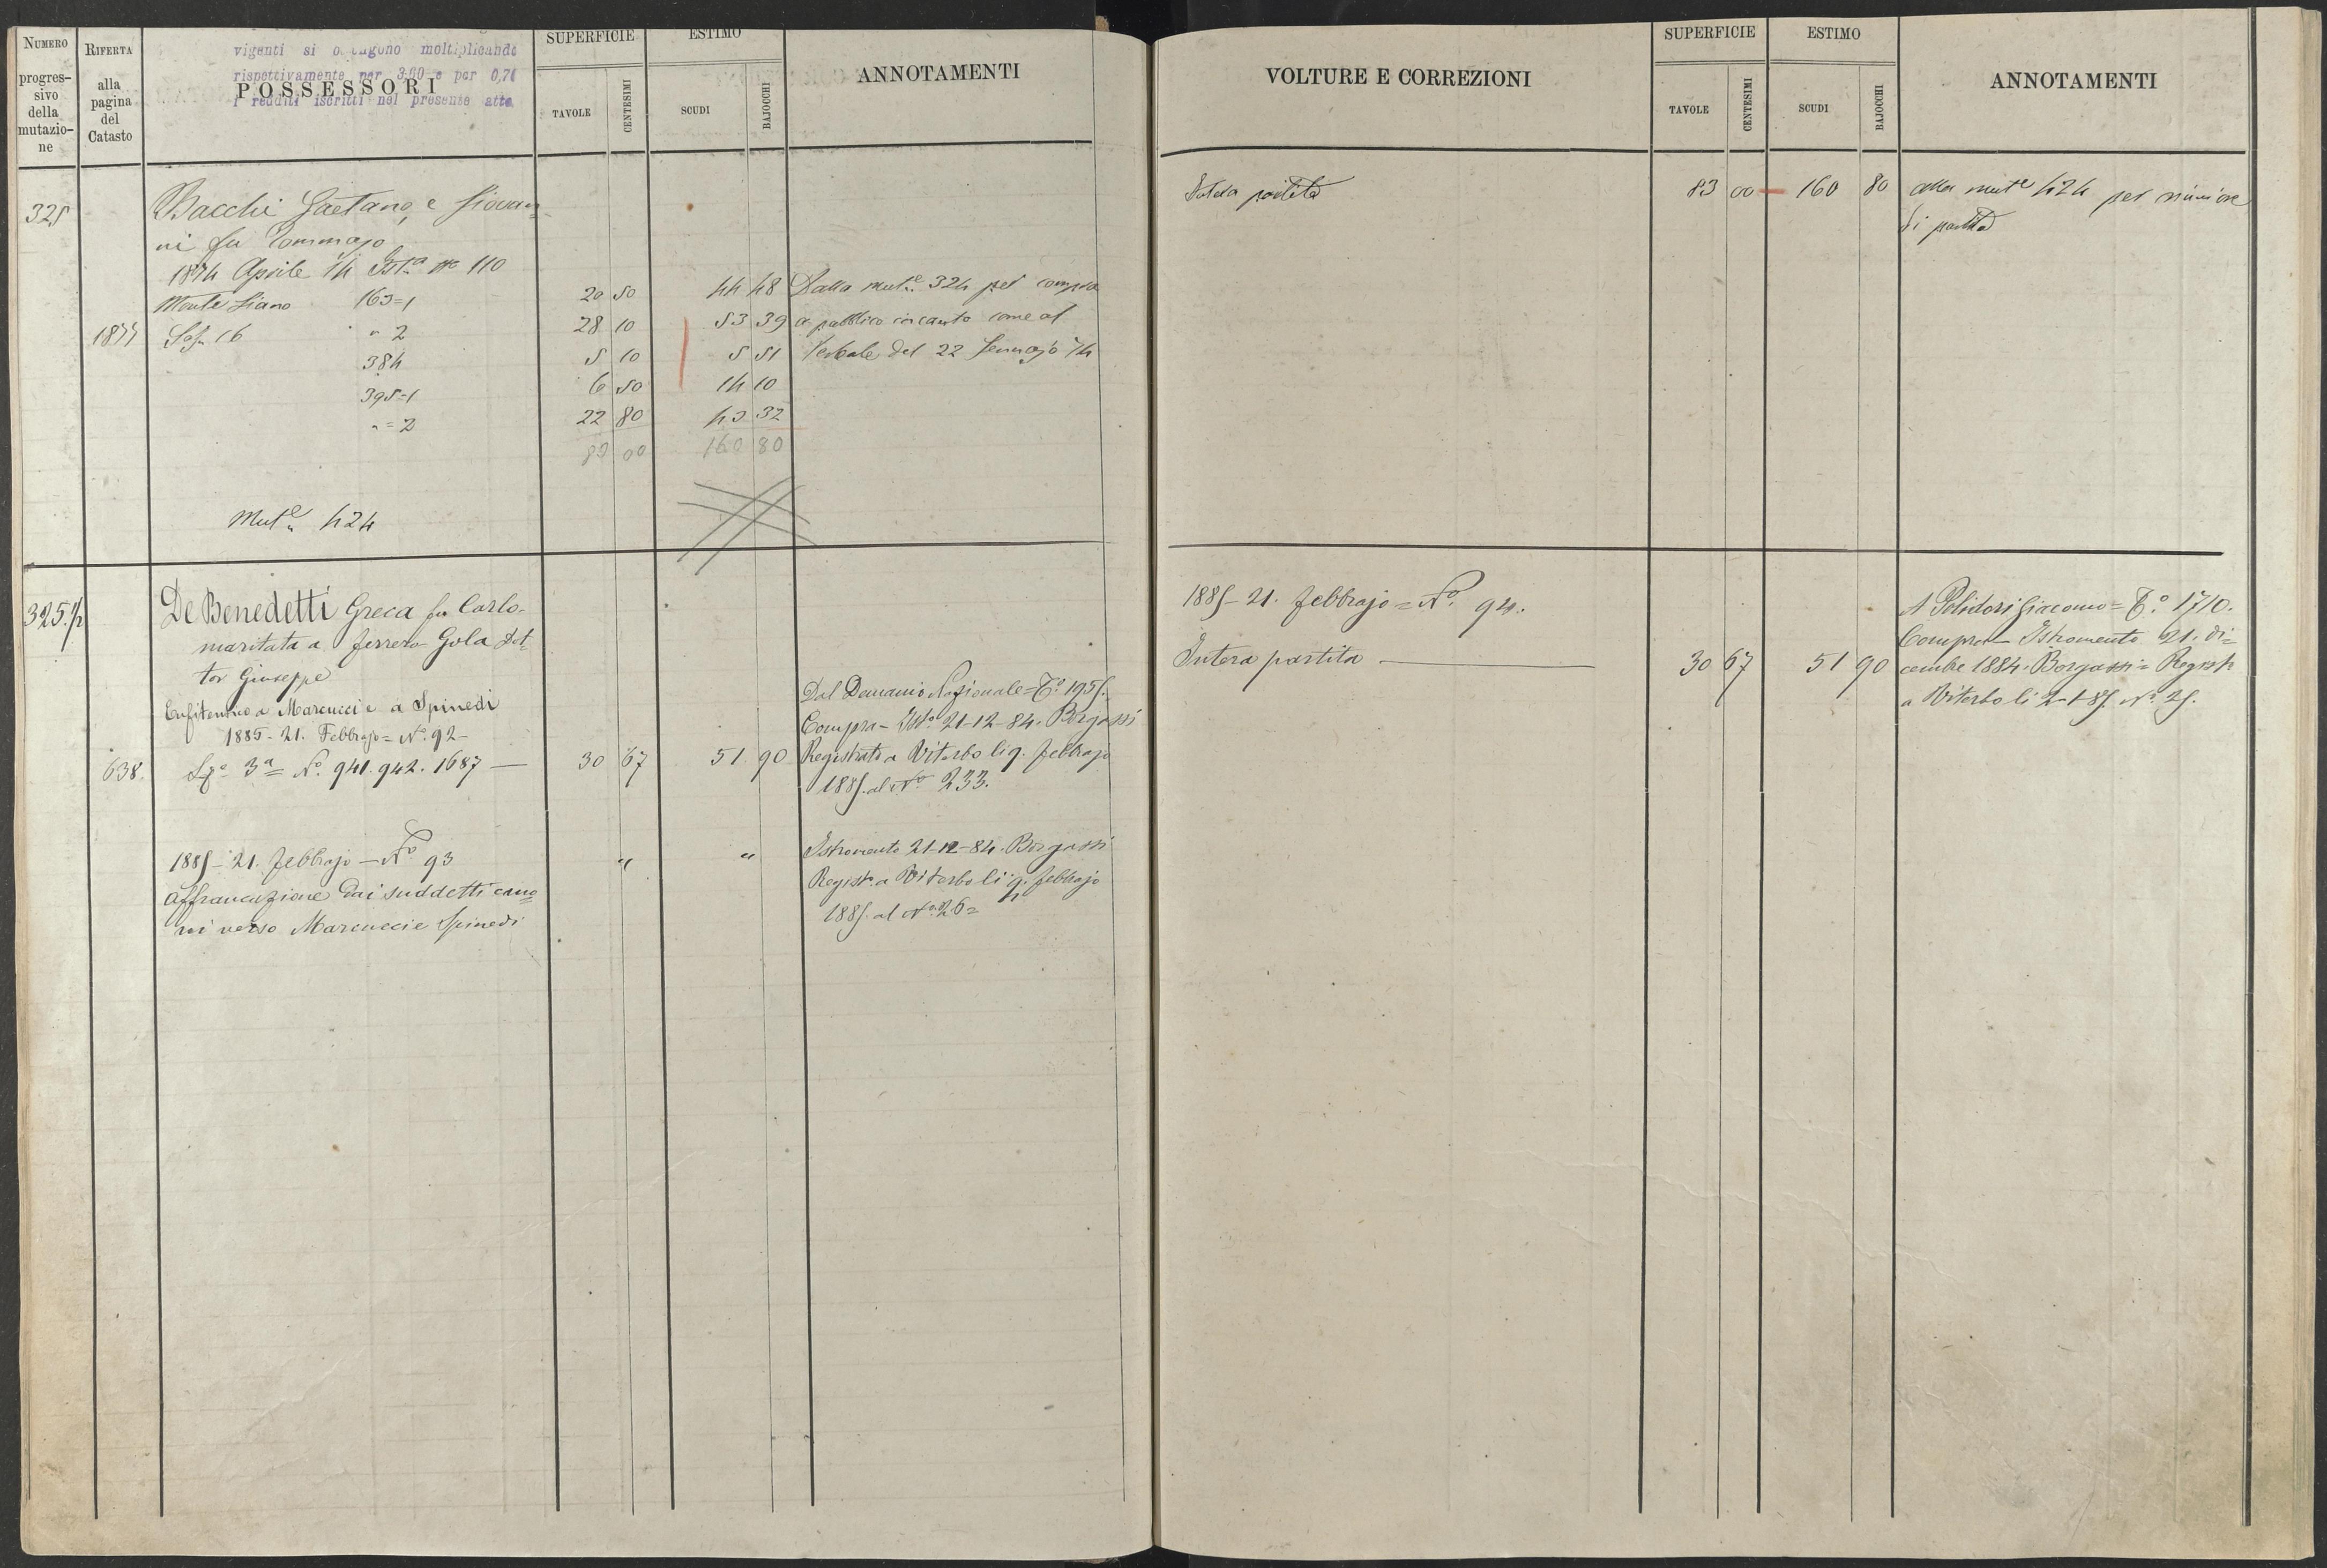 NUMERO progressivo della mutazione
RIFERTA alla pagina del Catasto
vigenti si ottengono moltiplicando
rispettivamente per 3.60 e per 0,71
i redditi iscritti nel presente atto.
POSSESSORI
SUPERFICIE
TAVOLE
CENTESIMI
ESTIMO
SCUDI
BAJOCCHI
ANNOTAMENTI
VOLTURE E CORREZIONI
SUPERFICIE
TAVOLE
CENTESIMI
ESTIMO
SCUDI
BAJOCCHI
ANNOTAMENTI
325
Bacchi Gaetano, e Giovan-
ni fu Tommaso
1874 Aprile 14 Ist.a No 110
Monte Fiano 163=1 20 50 44 48 Dalla mut.e 324 per compra
1877 Sez. 16 " 2 28 10 53 39 a pubblico incanto come al
384 5 10 5 51 Verbale del 22 Gennajo 74
395=1 6 50 14 10
"=2 22 80 43 32
83 00 160 80
Mut.e 424
Intera partita 83 00 160 80 alla mut.e 424 per riunione
di partita
325.½
De Benedetti Greca fu Carlo
maritata a Ferrero Gola Dot-
tor Giuseppe
Enfiteutico a Marcucci e a Spinedi
1885 - 21. Febbrajo = No. 92 -
638. Sz.e 3a = No. 941. 942. 1687 — 30 67 51 90
Dal Demanio Nazionale = To. 195.
Compra - Isto. 21-12-84. Borgassi
Registrato a Viterbo li 9. febbrajo
1885. al No. 233.
1885 - 21. febbrajo - No 93 " "
Affrancazione dai suddetti cano-
ni verso Marcucci e Spinedi
Istromento 21-12-84. Borgassi
Regist. a Viterbo li 9. febbrajo
1885. al No.
1885 - 21. febbrajo = No. 94.
Intera partita — 30 67 51 90
A Polidori Giacomo = To. 1710.
Compra - Istromento 21. di-
cembre 1884. Borgassi = Regist.
a Viterbo li 2-1-85. No. 25.